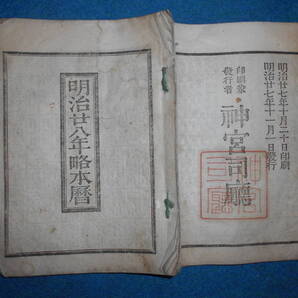 明治廿七年十月二十日印刷
明治廿七年十一月一日發行
印刷兼
發行者
神宮司廳
明治廿八年略本暦